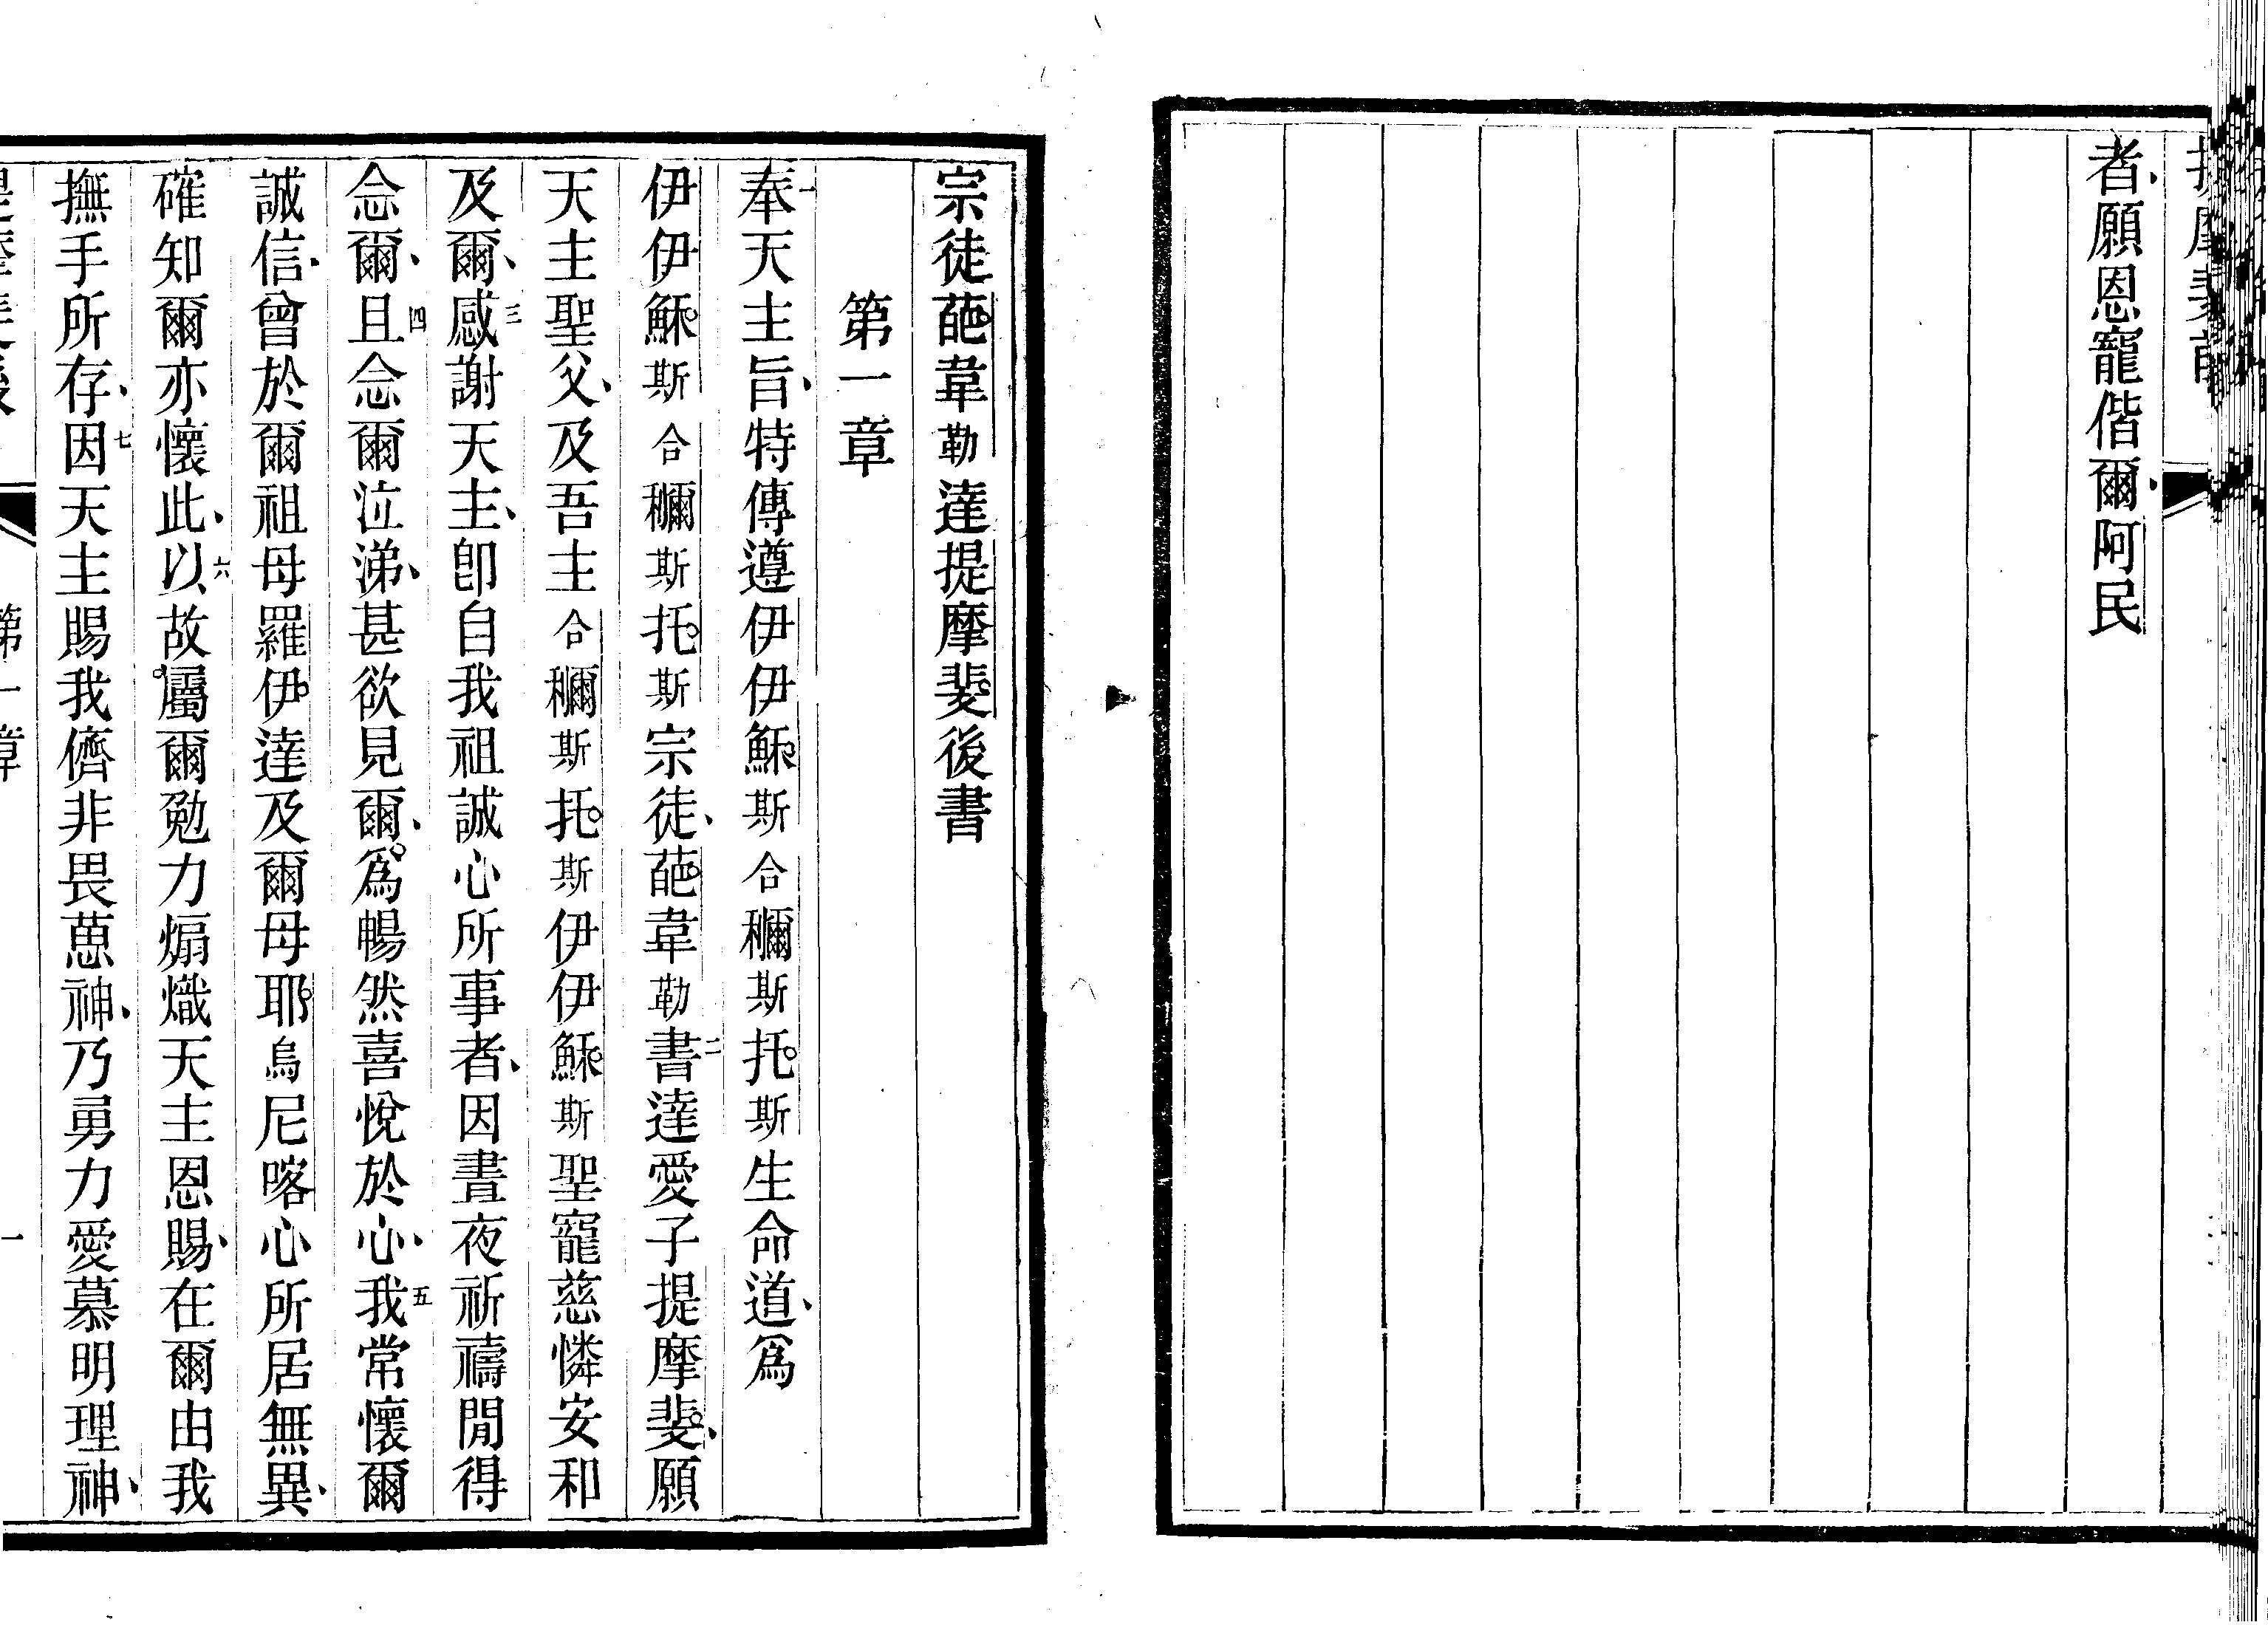 者、願恩寵偕爾、阿民
宗徒葩韋勒達提摩斐後書
第一章
一奉天主旨、特傳遵伊伊穌斯合穪斯托斯生命道、爲
伊伊穌斯合穪斯托斯宗徒、葩韋勒二書達愛子提摩斐、願
天主聖父、及吾主合穪斯托斯伊伊穌斯聖寵慈憐安和
及爾、三感謝天主、卽自我祖誠心所事者、因晝夜祈禱閒得
念爾、四且念爾泣涕、甚欲見爾、爲暢然喜悅於心、五我常懷爾
誠信、曾於爾祖母羅伊達及爾母耶烏尼喀心所居無異、
確知爾亦懷此、六以故屬爾勉力煽熾天主恩賜、在爾由我
撫手所存、七因天主賜我儕非畏葸神、乃勇力愛慕明理神、
第一章
一